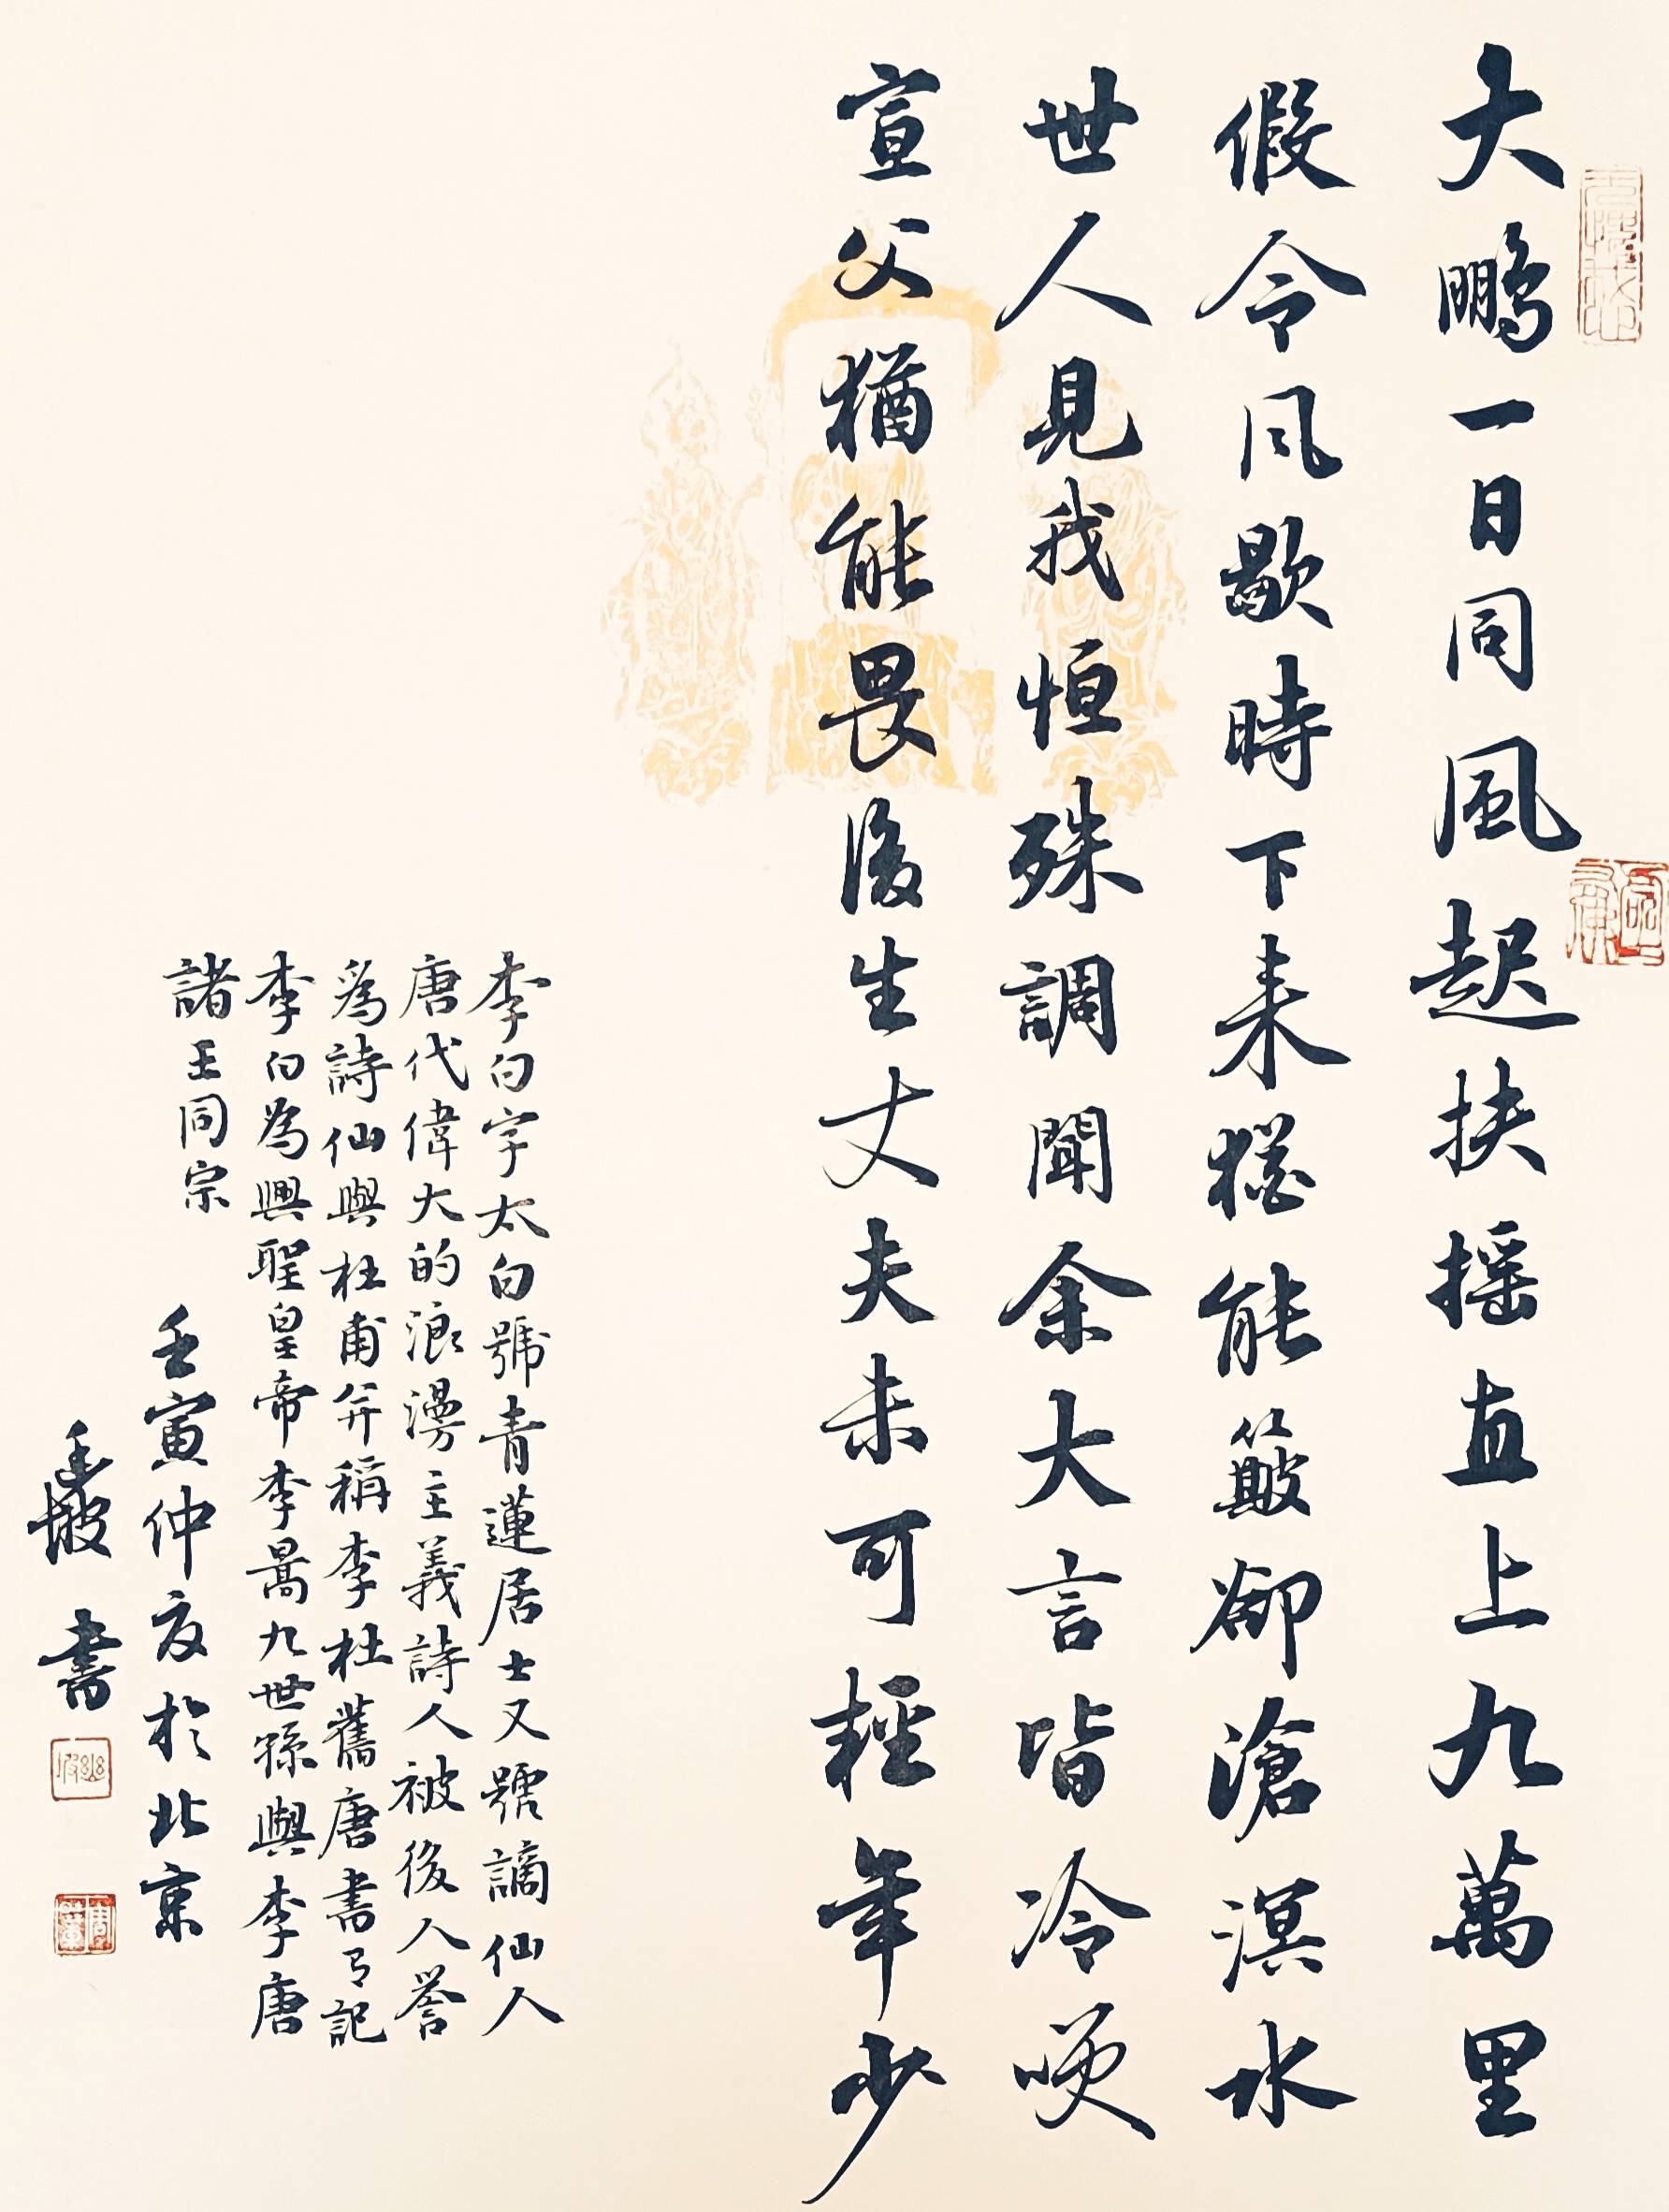 大鵬一日同風起扶摇直上九萬里
假令风歇時下来猶能簸卻滄溟水
世人見我恒殊調聞余大言皆冷唉
宣父猶能畏後生丈夫未可輕年少
李白字太白號青蓮居士又號謫仙人
唐代偉大的浪漫主義詩人被後人誉
為詩仙與杜甫并稱李杜舊唐書有記
李白為興聖皇帝李暠九世孫與李唐
諸王同宗
壬寅仲夏於北京
坡書